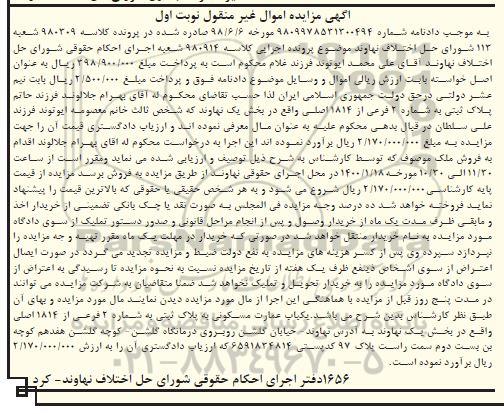 آگهی مزایده اموال غیر منقول نوبت اول
به موجب دادنامه شماره ۹۸۰۹۹۷۸۵۳۱۳۰۰۴۹۴ مورخه ۹۸/۶/۶ صادره شده در پرونده کلاسه ۹۸۰۳۰۹ شعبه
۱۱۳ شورای حل اختلاف نهاوند موضوع پرونده اجرایی کلاسه ۹۸۰۹۱۴ شعبه اجرای احکام حقوقی شورای حل
اختلاف نهاوند آقای علی محمد ایوتوند فرزند غلام محکوم است به پرداخت مبلغ ۳۹۸/۹۰۰/۰۰۰ ریال به عنوان
اصل خواسته بابت ارزش ریالی اموال و وسایل موضوع دادنامه فوق و پرداخت مبلغ ۲/۵۰۰/۰۰۰ ریال بابت نیم
عشر دولتی درحق دولت جمهوری اسلامی ایران لذا حسب تقاضای محکوم له آقای بهرام جلالوند فرزند حاتم
پلاک ثبتی به شماره ۲ فرعی از ۱۸۱۴ اصلی واقع در بخش یک نهاوند که شخص ثالث خانم معصومه ایوتوند فرزند
علی سلطان در قبال بدهی محکوم علیه به عنوان مال معرفی نموده اند و ارزیاب دادگستری قیمت آن را جهت
مزایده به مبلغ ۲/۱۷۰/۰۰۰/۰۰۰ ریال برآورد نموده اند این اجرا به درخواست محکوم له آقای بهرام جلالوند اقدام
به فروش ملک موصوف که توسط کارشناس به شرح ذیل توصیف و ارزیابی شده می نماید ومقرر است از ساعت
۱۱/۳۰ الی ۱۰/۳۰ مورخه ۱۴۰۰/۱/۱۸ در محل اجرای حقوقی نهاوند از طریق مزایده به فروش برسد مزایده از قیمت
پایه کارشناسی ۲/۱۷۰/۰۰۰/۰۰۰ ریال شروع می شود و به هر شخص حقیقی یا حقوقی که بالاترین قیمت را پیشنهاد
نماید فروخته خواهد شد ده درصد وجه مزایده فی المجلس به صورت نقد یا چک بانکی تضمینی از خریدار اخذ
و مابقی ظرف مدت یک ماه از خریدار وصول و پس از انجام مراحل قانونی و صدور دستور تملیک از سوی دادگاه
مورد مزایده به نام خریدار منتقل خواهد شد در صورتی که خریدار در مهلت یک ماه مقرر تهیه و جه مزایده را
نپردازد سپرده وی پس از کسر هزینه های مزایده به نفع دولت ضبط و مزایده تجدید می گردد در صورت ایصال
اعتراض از سوی اشخاص ذینفع ظرف یک هفته از تاریخ مزایده نسبت به نحوه مزایده تا رسیدگی به اعتراض از
سوی دادگاه مورد مزایده را به خریدار تحویل و تملیک نخواهد شد ضمنا متقاضیان به شرکت مزایده می توانند
در مدت پنج روز قبل از مزایده با هماهنگی این اجرا از مال مورد مزایده دیدن نمایند مال مورد مزایده و بهای آن
طبق نظر کارشناس بدین شرح می باشد یکباب عمارت مسکونی به پلاک ثبتی به شماره ۲ فرعی از ۱۸۱۴ اصلی
واقع در بخش یک نهاوند به آدرس نهاوند- خیابان گلشن روبروی درمانگاه گلشن - کوچه گلشن هفدهم کوچه
بن بست دوم سمت راست پلاک ۹۷ کدپستی ۶۵۹۱۸۳۴۸۱۴ که ارزیاب دادگستری آن را به ارزش ۲/۱۷۰/۰۰۰/۰۰۰
ریال برآورد نموده است.
۱۶۵۶دفتر اجرای احکام حقوقی شورای حل اختلاف نهاوند- کرد